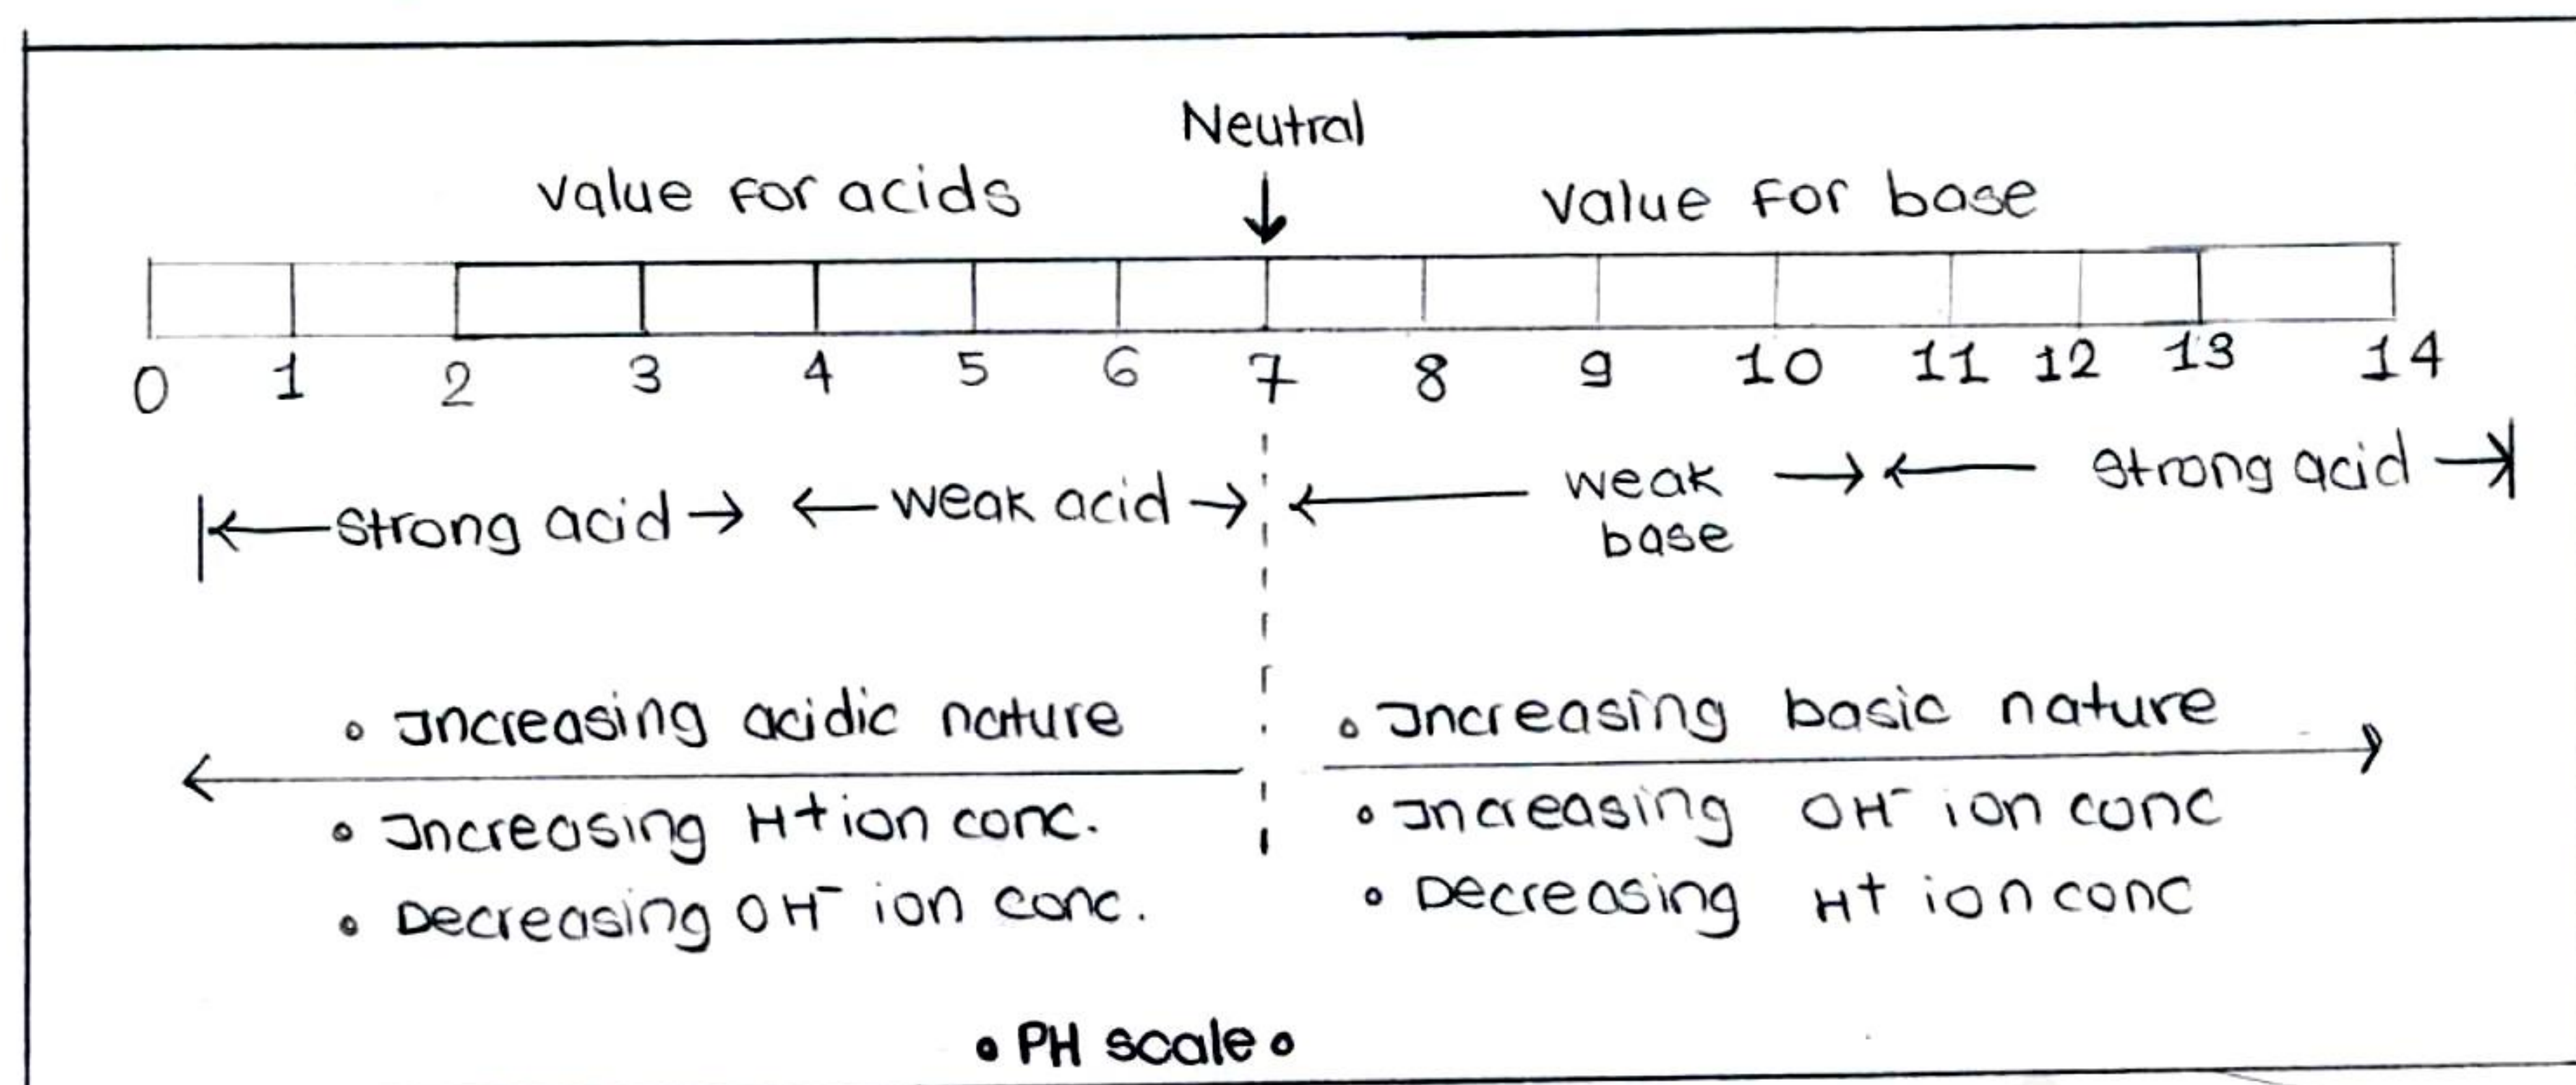 Neutral
value for acids
value for base
0 1 2 3 4 5 6 7 8 9 10 11 12 13 14
strong acid weak acid weak base strong acid
• Increasing acidic nature
• Increasing basic nature
• Increasing H+ ion conc.
• Increasing OH⁻ ion conc
• Decreasing OH⁻ ion conc.
• Decreasing H+ ion conc
• PH scale •